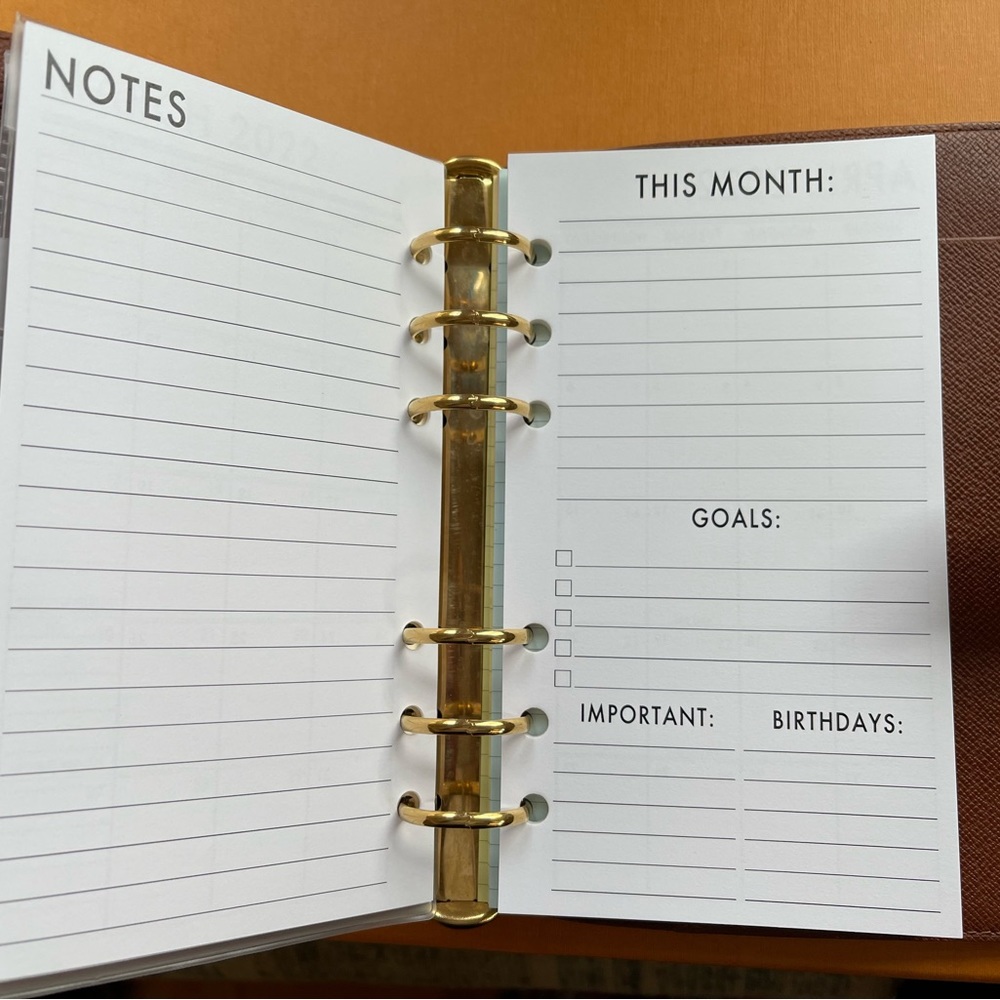 NOTES
2022
THIS MONTH:
GOALS:
IMPORTANT:
BIRTHDAYS: